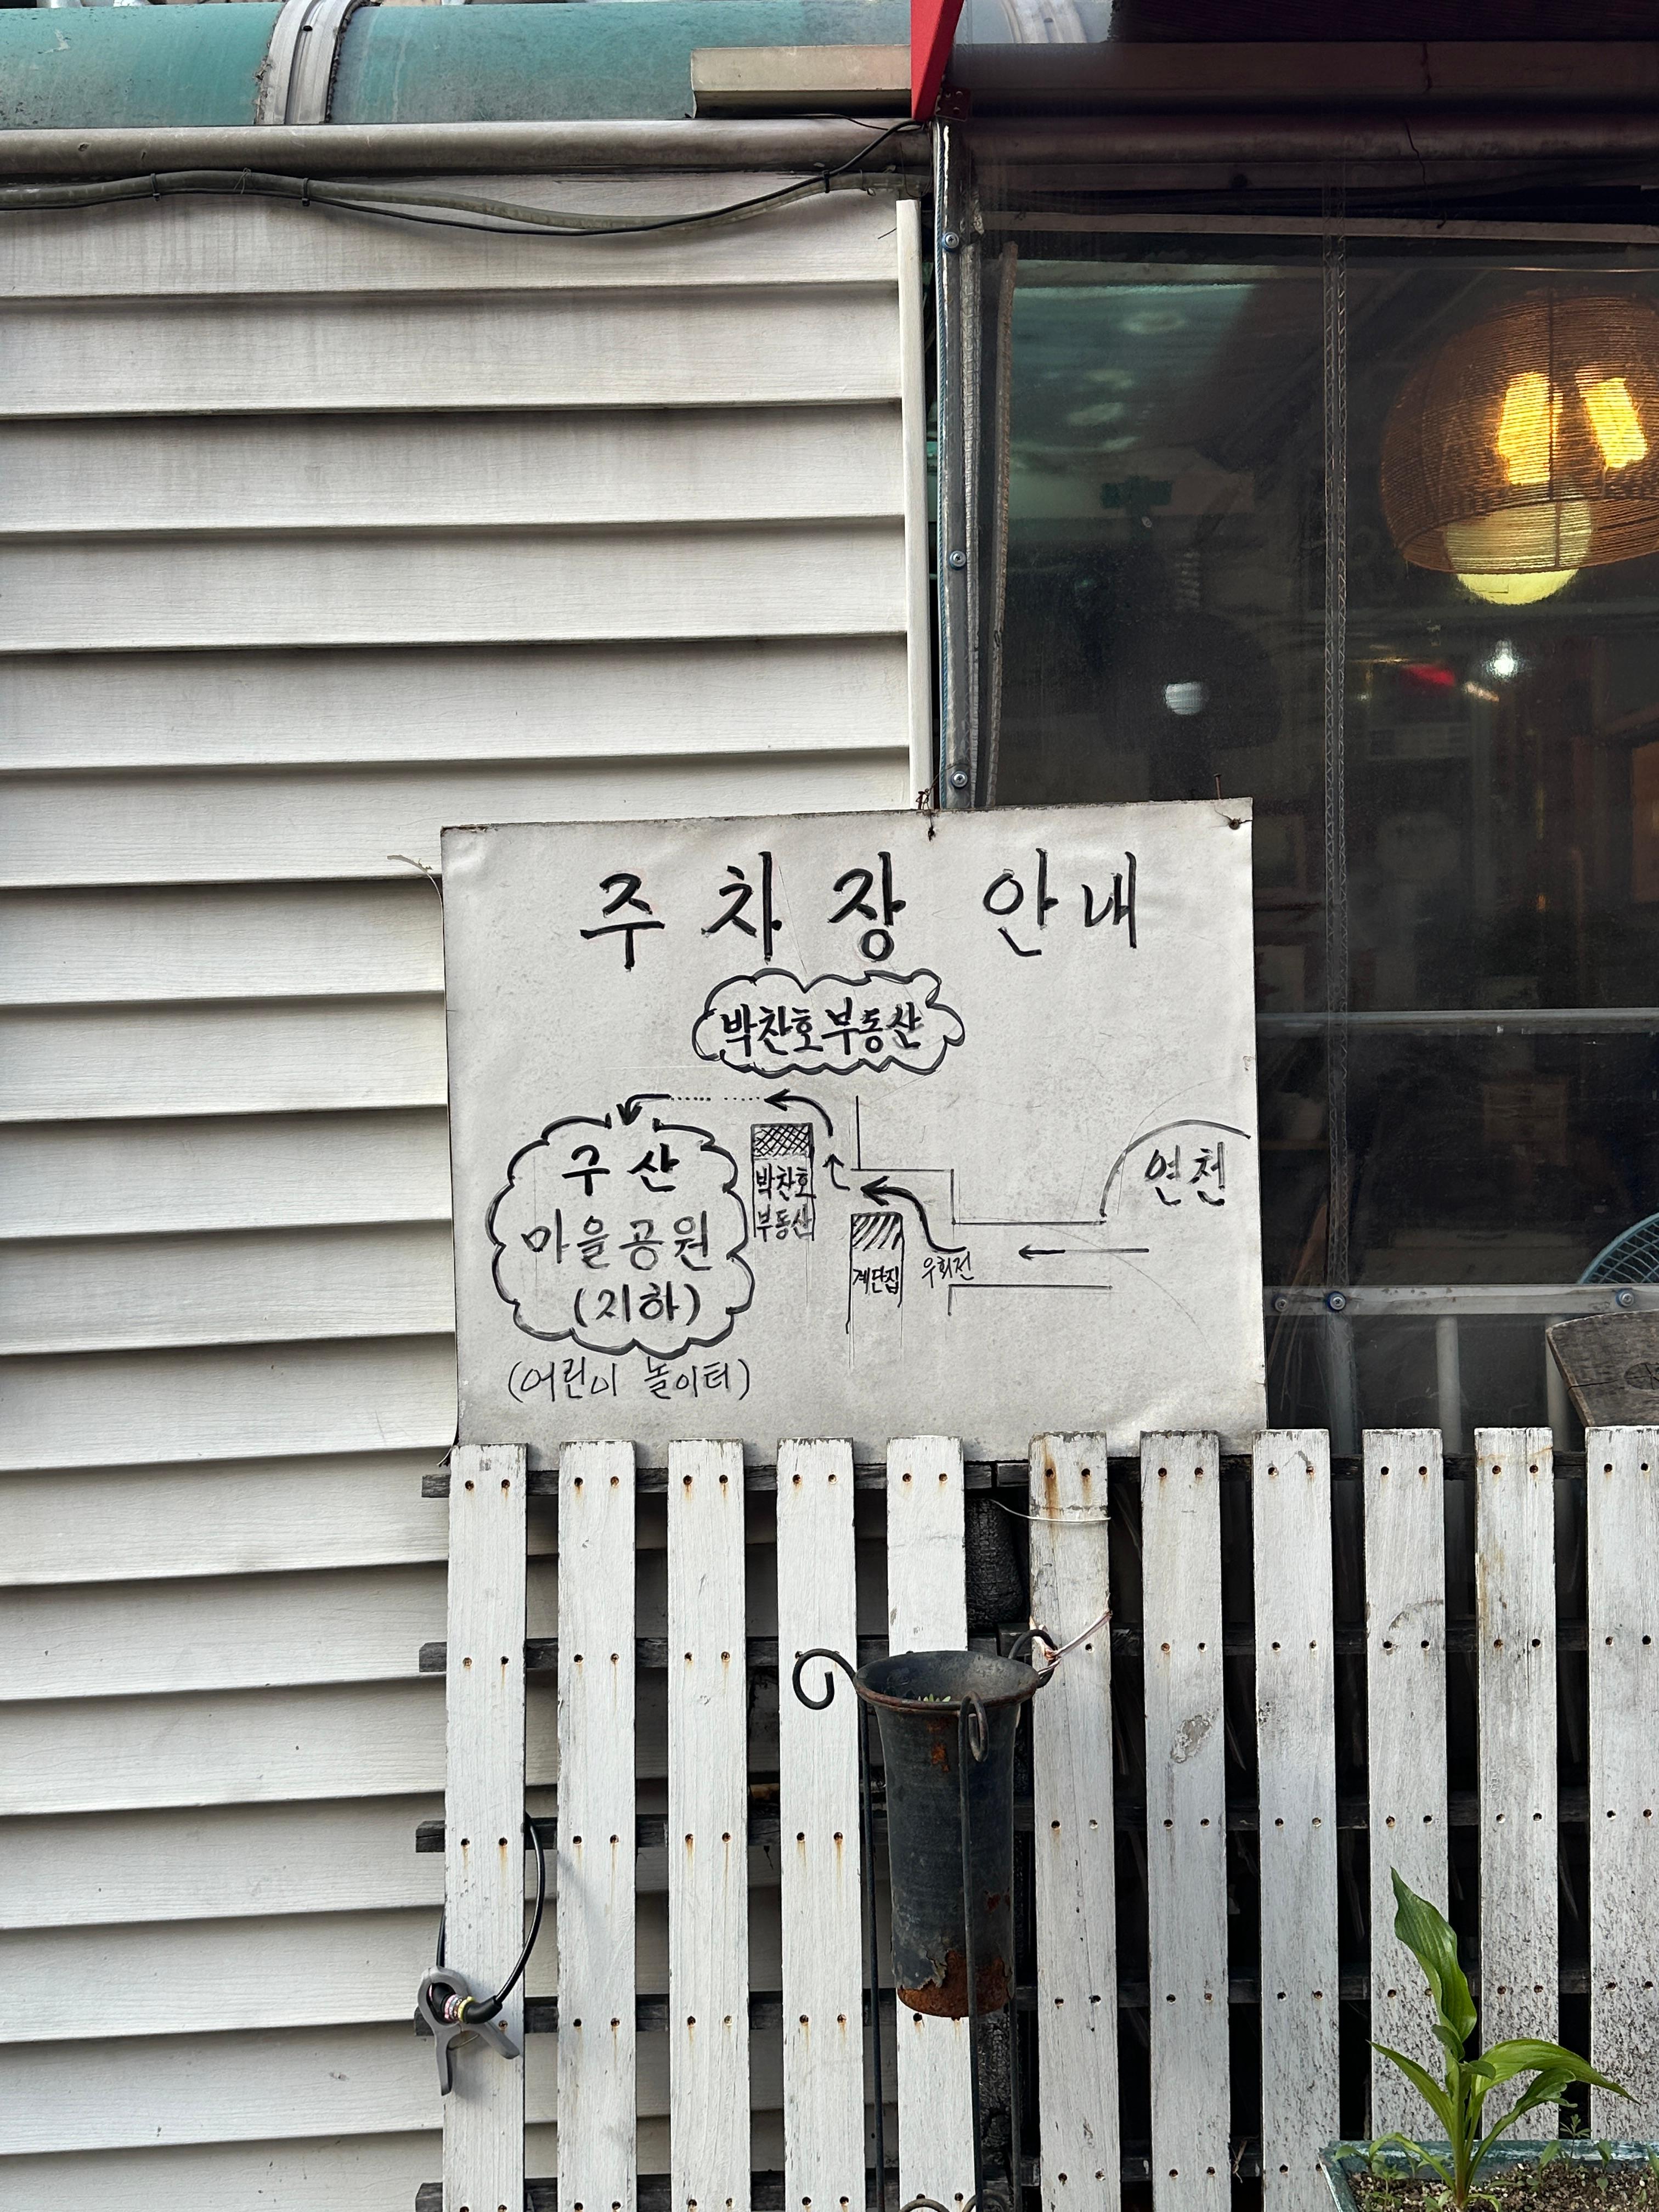 주차장 안내
박찬호부동산
구산
마을공원
(지하)
(어린이 놀이터)
박찬호
부동산
계단집
우회전
연천